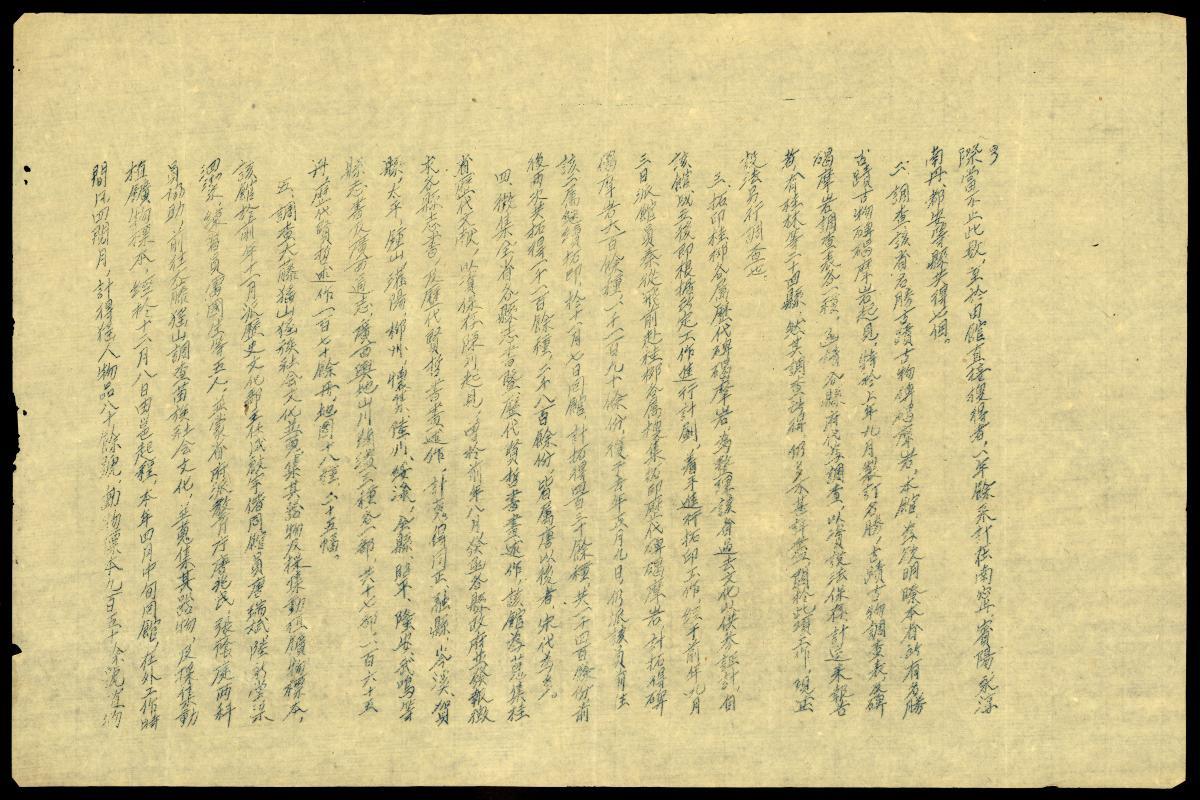 3
際當不止此歟，至於由館直接復得者，八年餘來計在南寧、賓陽、永淳
南丹、都安等縣共得七個。
二、調查該省名勝古蹟古物碑碣摩岩，本館為欲明瞭本省所有名勝
古蹟古物碑碣摩岩起見，特於上年九月製訂名勝，古蹟古物調查表及碑
碣摩岩調查表各一種，函請各縣府代為調查，以資設法保存計近來報告
者有桂林等二十四縣，然其調查所得，仍多不甚詳盡，關於此項工作，現正
設法另行調查也。
三、拓印桂柳各屬歷代碑碣摩岩，為整理該省過去文化以供參証計，自
該館成立後即根據所定工作進行計劃，着手進行拓印工作，經于前年九月
三日派館員秦從飛前赴桂柳各屬搜集拓印歷代碑碣摩岩，計拓得碑
碣摩岩六百餘種，一千一百九十餘份，復于去年五月九日仍派該員前往
該二屬繼續拓印，於十一月七日回館，計拓得四百二十餘種，共一千四百餘份前
後兩次共拓得一千一百餘種，二千八百餘份，皆屬唐以後者，宋代尤多。
四、徵集全省各縣志書暨歷代賢哲書畫述作，該館為蒐集桂
省歷代文献，以資保存陳列起見，嘗於前年八月發函各縣政府共發報徵
求各縣志書，及歷代賢哲書畫述作，計蒐得同正、融縣、岑溪、賀
縣、太平、鍾山、灌陽、柳州、懷集、陸川、綏淥、全縣、昭平、隆安、武鳴等
縣志書及廣西通志，廣西輿地山川 二種各一部，共十七部，一百六十五
冊，歷代賢哲述作一百七十餘冊，地圖十八種，六十五幅。
五、調查大藤猺山猺族社會文化並蒐集其器物及採集動植礦物標本，
該館於前年十一月派歷史文化部主任 偕同館員唐瑞斌、陸
練習員 等五人，並蒙省府派教育廳唐兆民、張蔭庭兩科
員協助，前往大藤猺山調查苗族社會文化，並蒐集其器物，及採集動
植礦物標本，經於十二月八日由邕起程，本年四月中旬回館，在外工作時
間凡四閱月，計得猺人物品八十餘號，動物標本九百五十餘號，